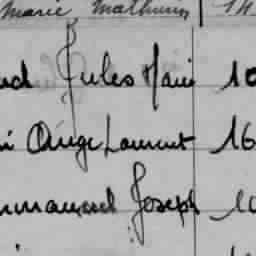 Marie Mathurin 14
nd Jules Marie 10
i Ange Laurent 16
mmanuel Joseph 10